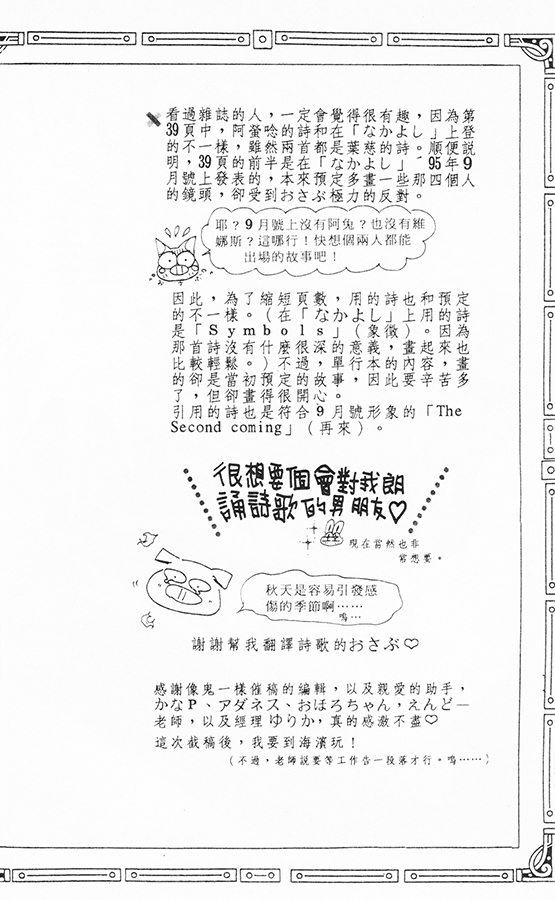 看過雜誌的人，一定會覺得很有趣，因為第
39頁中，阿螢唸的詩和在「なかよし」上登
的不一樣，雖然兩首都是葉慈的詩。順便說
明，39頁的前半是在「なかよし」'95年9
月號上發表的，本來預定多畫一些那四個人
的鏡頭，卻受到おさぶ極力的反對。
耶？9月號上沒有阿兔？也沒有維
娜斯？這哪行！快想個兩人都能
出場的故事吧！
因此，為了縮短頁數，用的詩也和預定
的不一樣。（在「なかよし」上用的詩
是「Symbols」（象徵）。因為
那首詩沒有什麼很深的意義，畫起來也
比較輕鬆。）不過，單行本的內容，畫
的卻是當初預定的故事，因此要辛苦多
了，但卻畫得很開心。
引用的詩也是符合9月號形象的「The
Second coming」（再來）。
很想要個會對我朗
誦詩歌的男朋友♡
現在當然也非
常想要。
秋天是容易引發感
傷的季節啊……
嗚…
謝謝幫我翻譯詩歌的おさぶ♡
感謝像鬼一樣催稿的編輯，以及親愛的助手，
かなP、アダネス、おほろちゃん，えんどー
老師，以及經理ゆりか，真的感激不盡♡
這次截稿後，我要到海濱玩！
（不過，老師說要等工作告一段落才行。嗚……）